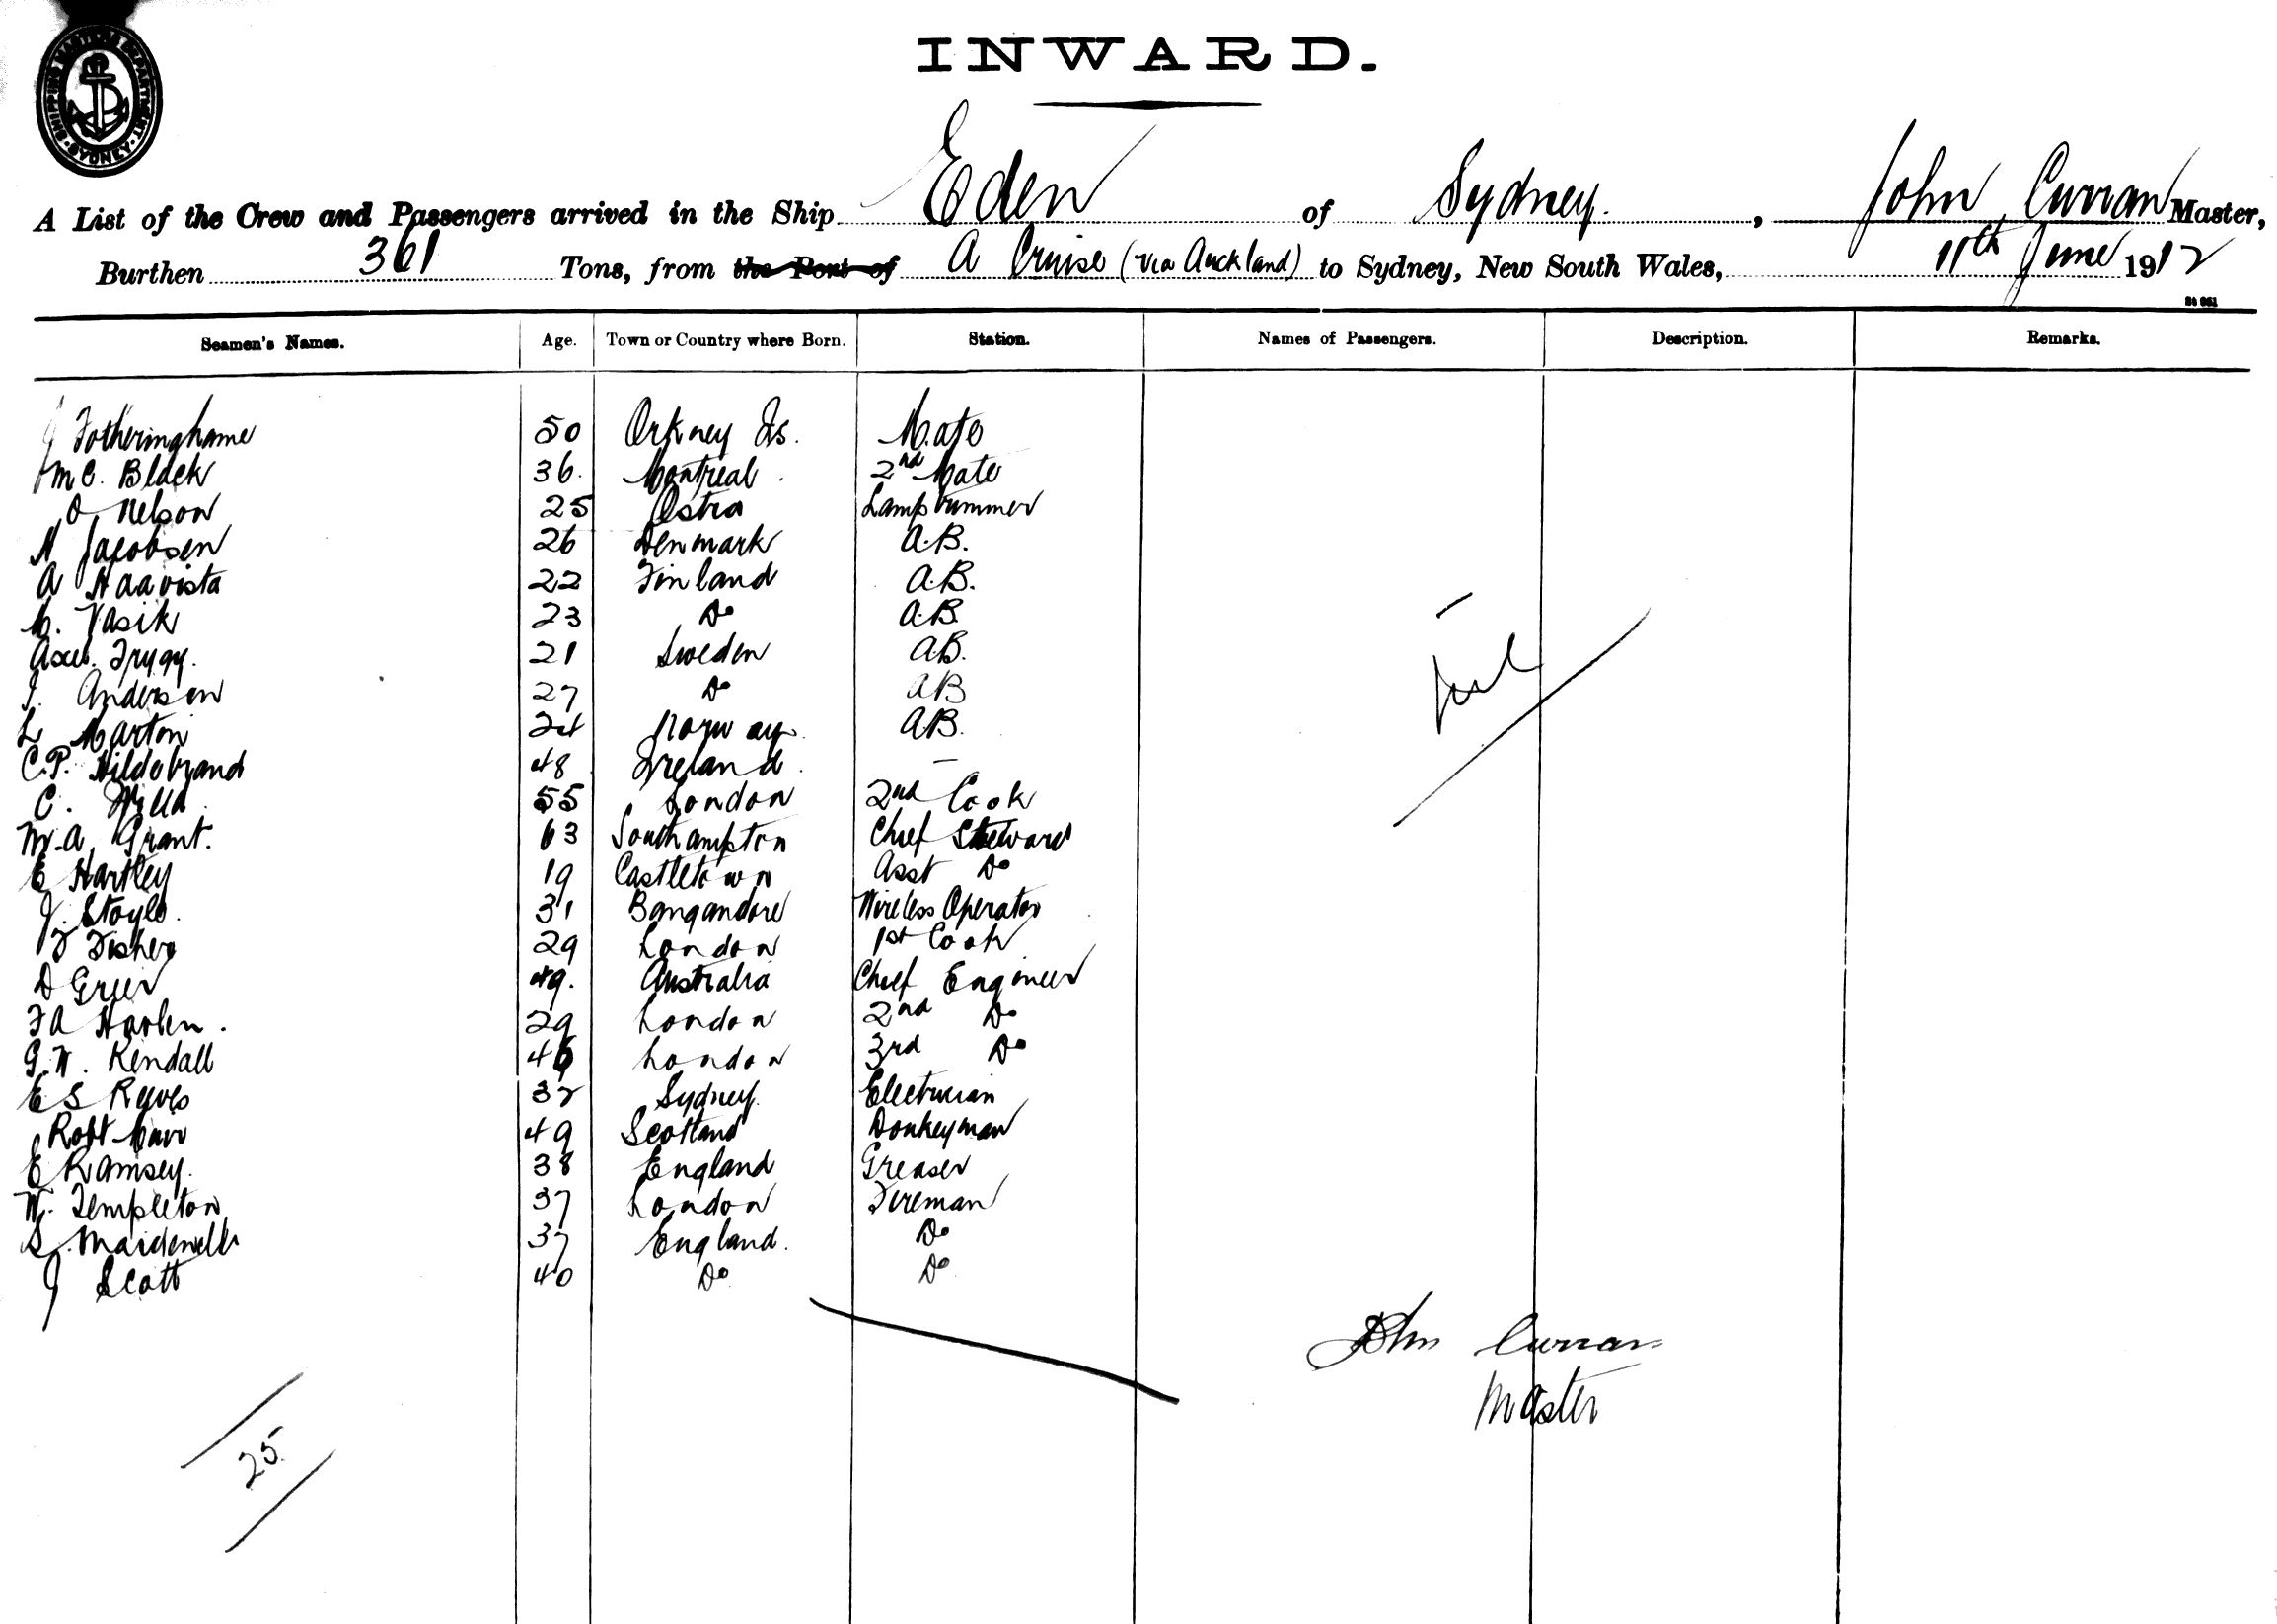 SHIPPING MASTERS DEPARTMENT. SYDNEY.
INWARD.
A List of the Crew and Passengers arrived in the Ship Eden of Sydney. , John Curran Master,
Burthen 361 Tons, from the Port of A Cruise (via Auckland) to Sydney, New South Wales, 11th June 1912
Seamen's Names. Age. Town or Country where Born. Station. Names of Passengers. Description. Remarks.
J Fotheringhame 50 Orkney Is. Mate
Mc. Black 36. Montreal. 2nd Mate
O Nelson 25 Lamptrimmer
N Jacobsen 26 Denmark A.B.
A Haavista 22 Finland A.B.
M. Vasik 23 Do A.B.
Axel. Trygg. 21 Sweden A.B.
J. Anderson 27 Do AB
L Marton 24 Norway. AB.
C.P. Hildebrand 48 Ireland. —
C. 55 London 2nd Cook
M.A. Grant. 63 Southampton Chief Steward
E Hartley 19 Castletown Asst Do
J. Stoyle. 31 Bangandore Wireless Operator
F Fisher 29 London 1st Cook
D Greer 49. Australia Chief Engineer
F A 29 London 2nd Do
G.W. Kendall 46 London 3rd Do
E S Reeves 32 Sydney. Electrician
Robt Marr 49 Scotland Donkeyman
E Ramsey. 38 England Greaser
W. Templeton 37 London Fireman
S. Maidenwell 37 England. Do
J Scott 40 Do Do
John Curran
Master
25.